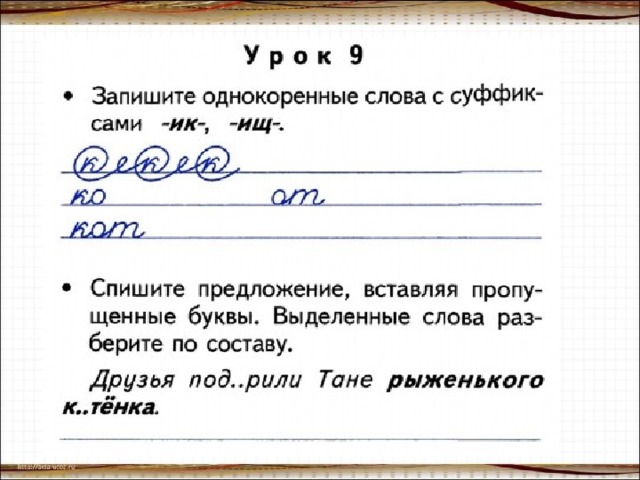 Урок 9
• Запишите однокоренные слова с суффик-
сами -ик-, -ищ-.
к е к е к
ко от
кот
• Спишите предложение, вставляя пропу-
щенные буквы. Выделенные слова раз-
берите по составу.
Друзья под..рили Тане рыженького
к..тёнка.